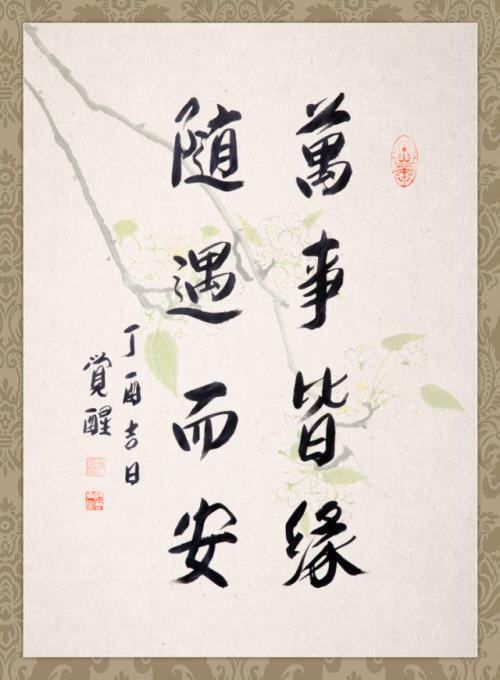 萬事皆緣
随遇而安
丁酉吉日
覺醒